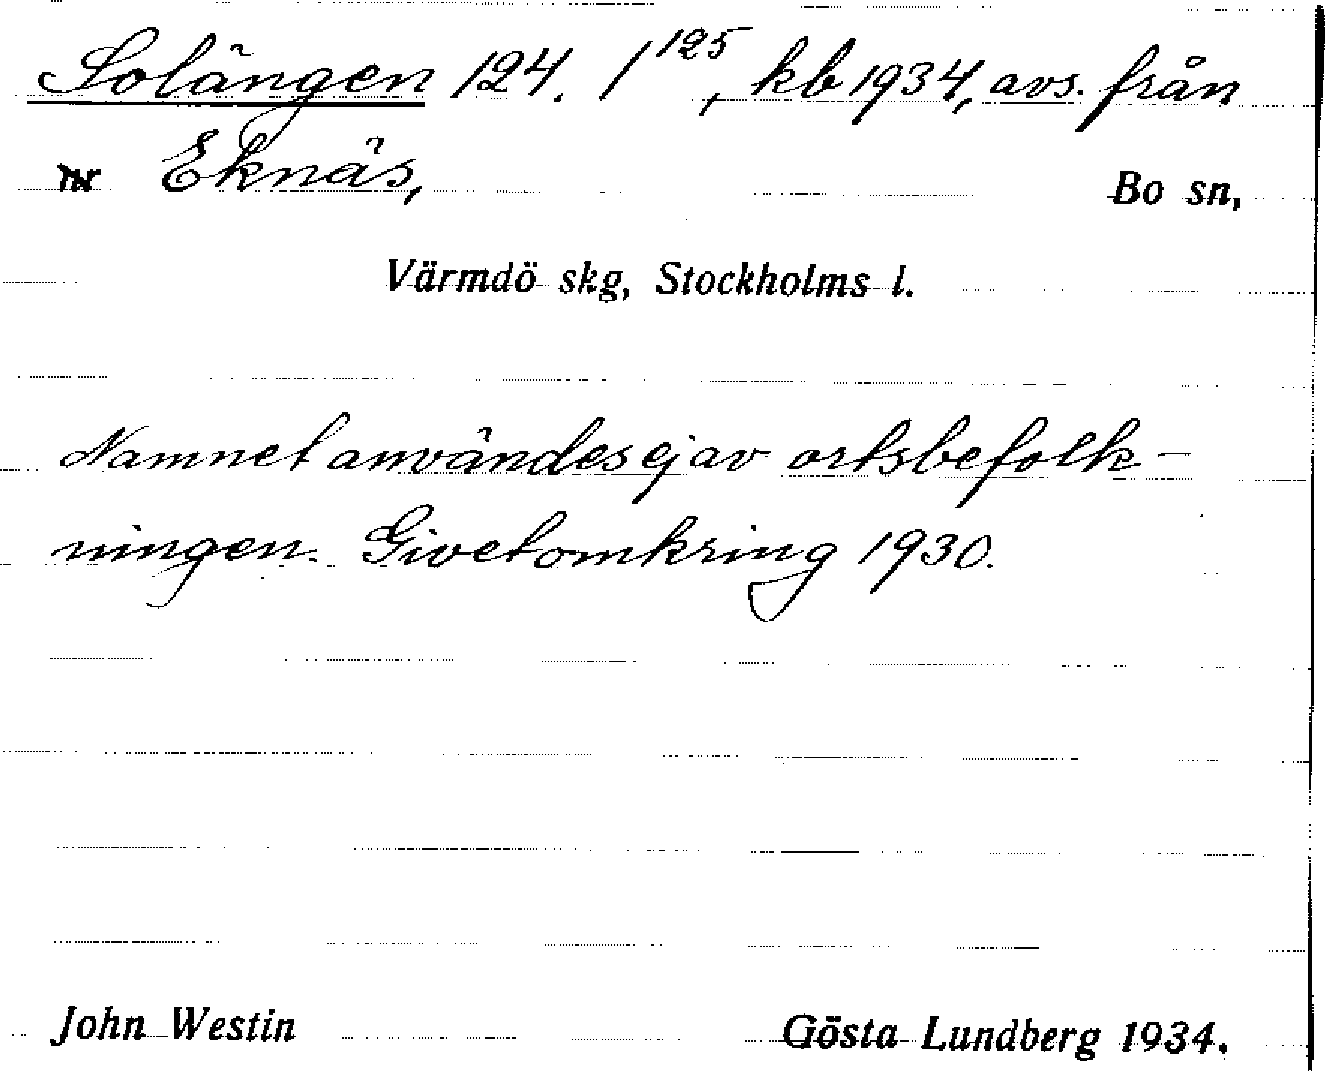 Solängen 124. 1¹²⁵, kb 1934, avs. från
Eknäs, Bo sn,
Värmdö skg, Stockholms l.
Namnet användes ej av ortsbefolk-
ningen. Givet omkring 1930.
John Westin Gösta Lundberg 1934.